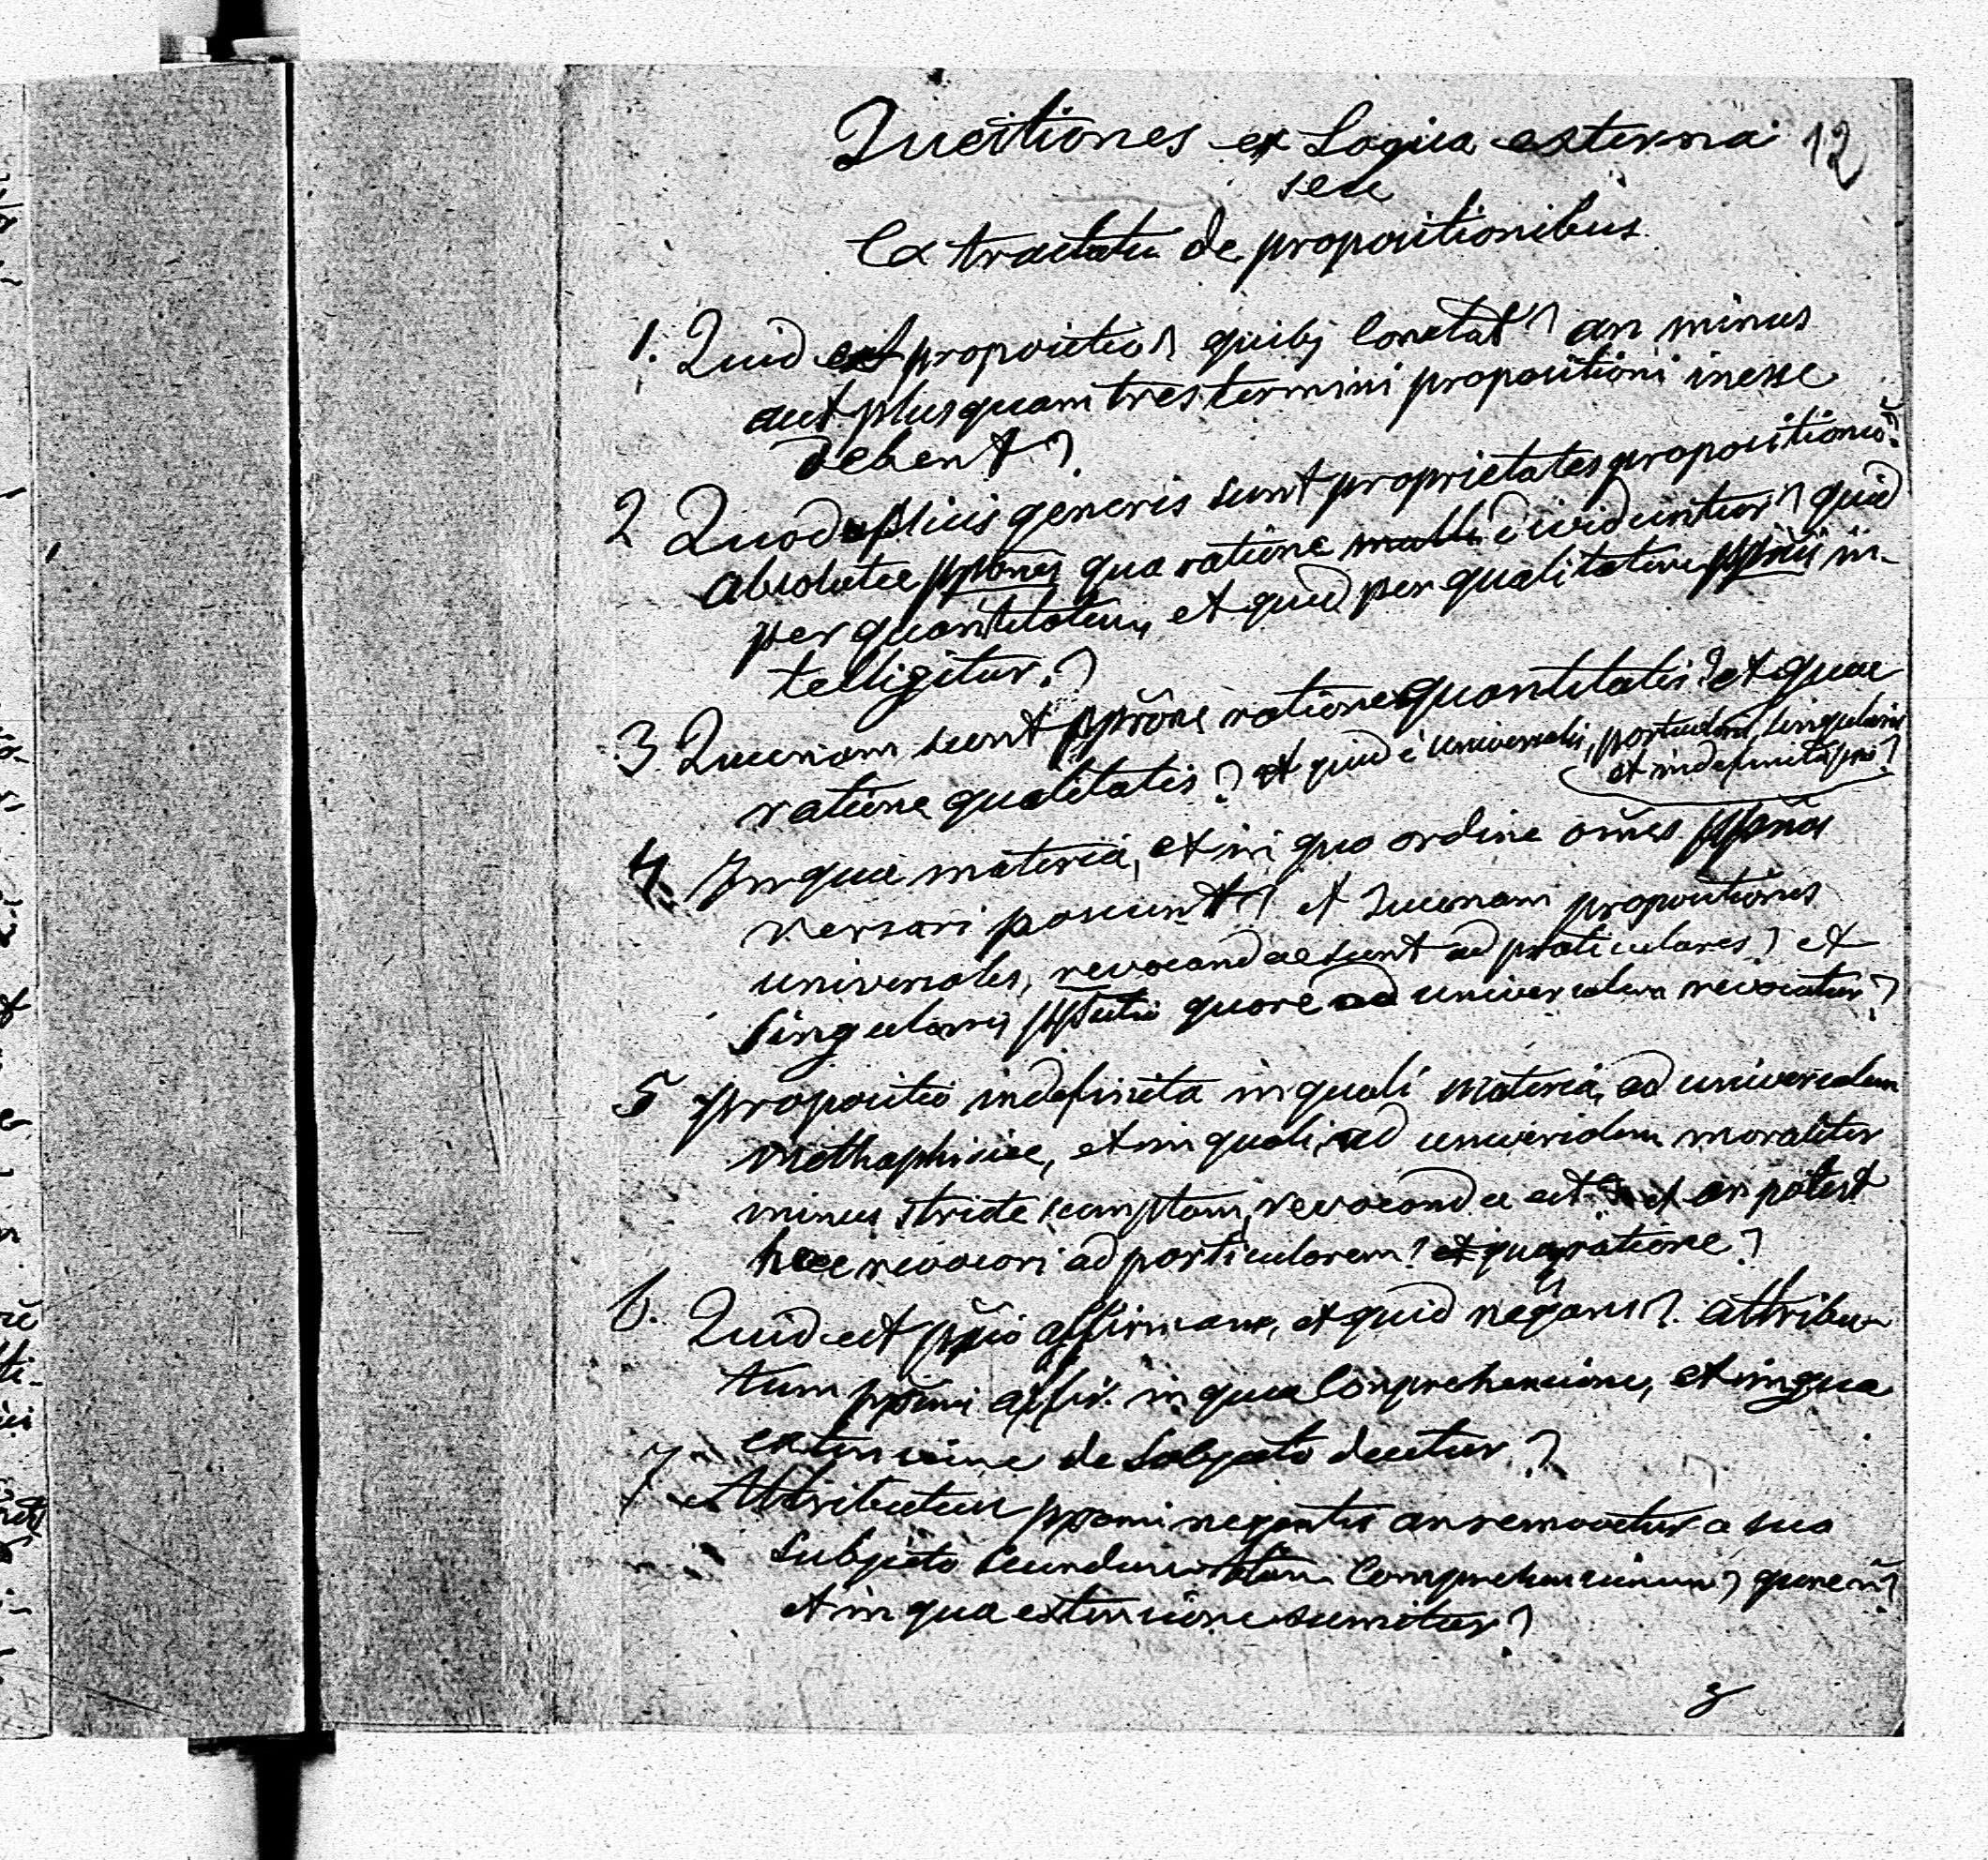 Questiones ex Logica externa 12
seu
Ex tractatu de propositionibus.
1. Quid est propositio? quibq constat? an minus
aut plusquam tres termini propositioni inesse
debent?
2 Quoduplicis generis sunt proprietates propositionū?
absolutae pponēs qua ratione dividuntur? quid
per quantitatem, et quid per qualitatem in-
telligitur?
3 Quaenam sunt ratione quantitatis? et quae
ratione qualitatis? et quid ē universalis, particularis, singularis
et indefinita
4. In qua materia, et in quo ordine om̄es
versari possunt? et quaenam propositiones
universales, revocandae sunt ad praticulares? et
singularis quare ad universalem revocatur?
5 propositio indefinita in quali materia, ad universalem
methaphisice, et in quali ad universalem moraliter
minus stricte sumptam, revocanda est et an potest
haec revocari ad particularem? et qua ratione?
6. Quid est affirmans, et quid negans? attribu-
tum affir. in qua comprehensione, et in qua
extensione de subjecto dicitur?
7 Attributum negantis an removetur a suo
subjecto secundum comprehensionem?
et in qua extensione sumitur?